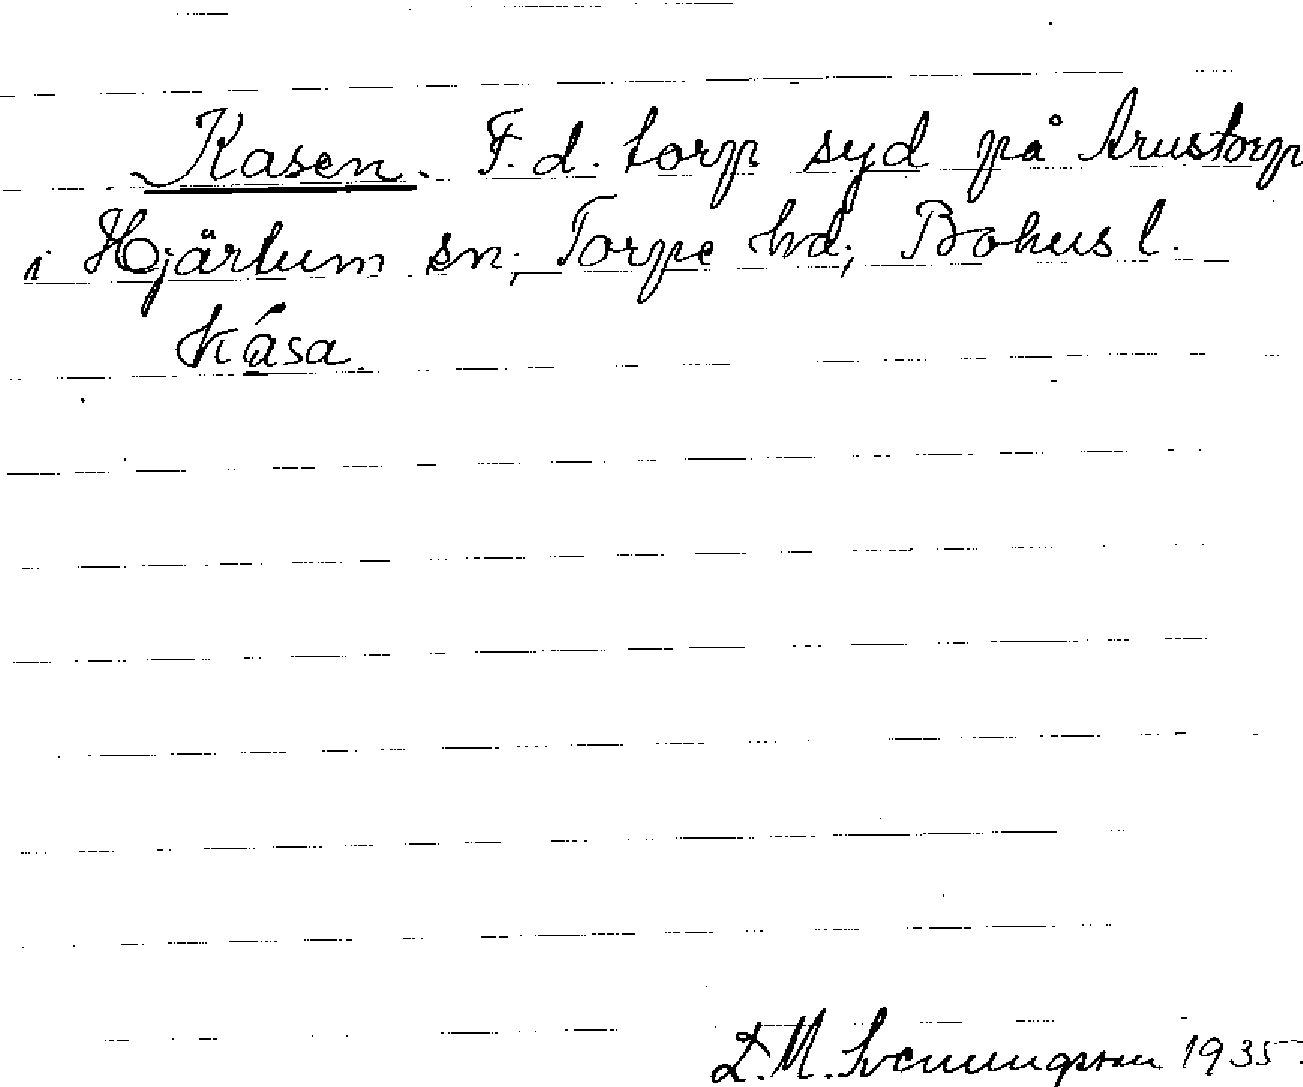 Kasen. F.d. torp syd på Arustorp
i Hjärtum sn; Torpe hd; Bohus l.
Kåsa.
D.M. 1935